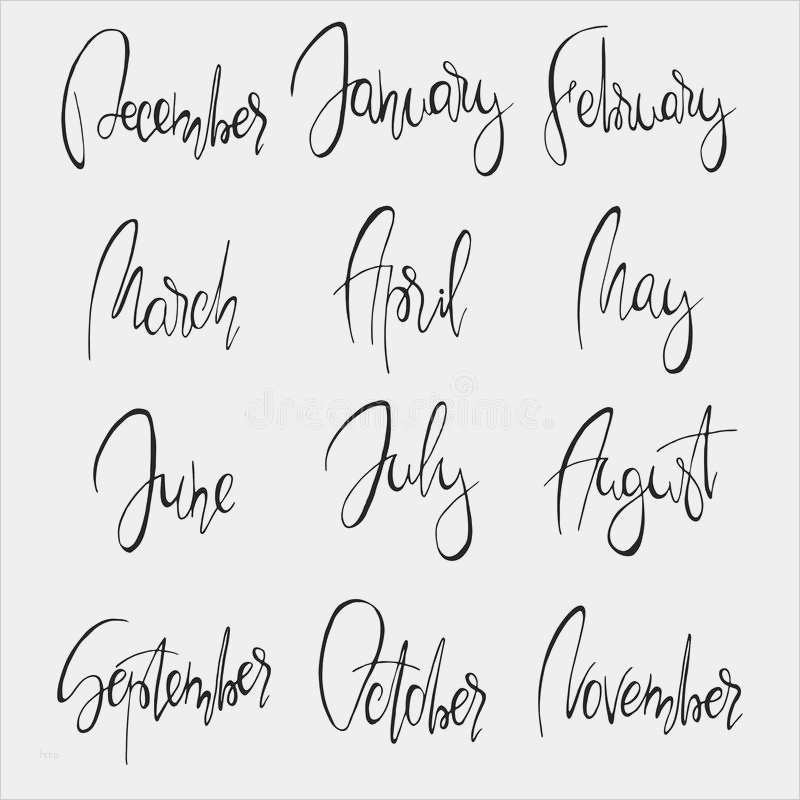 December January February
March April May
dreamstime.
June July August
September October November